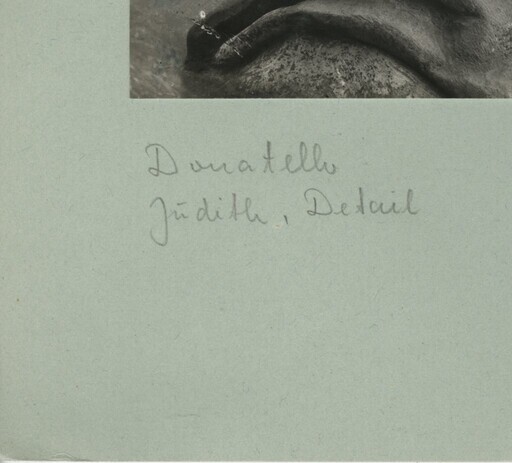 Donatello
Judith, Detail